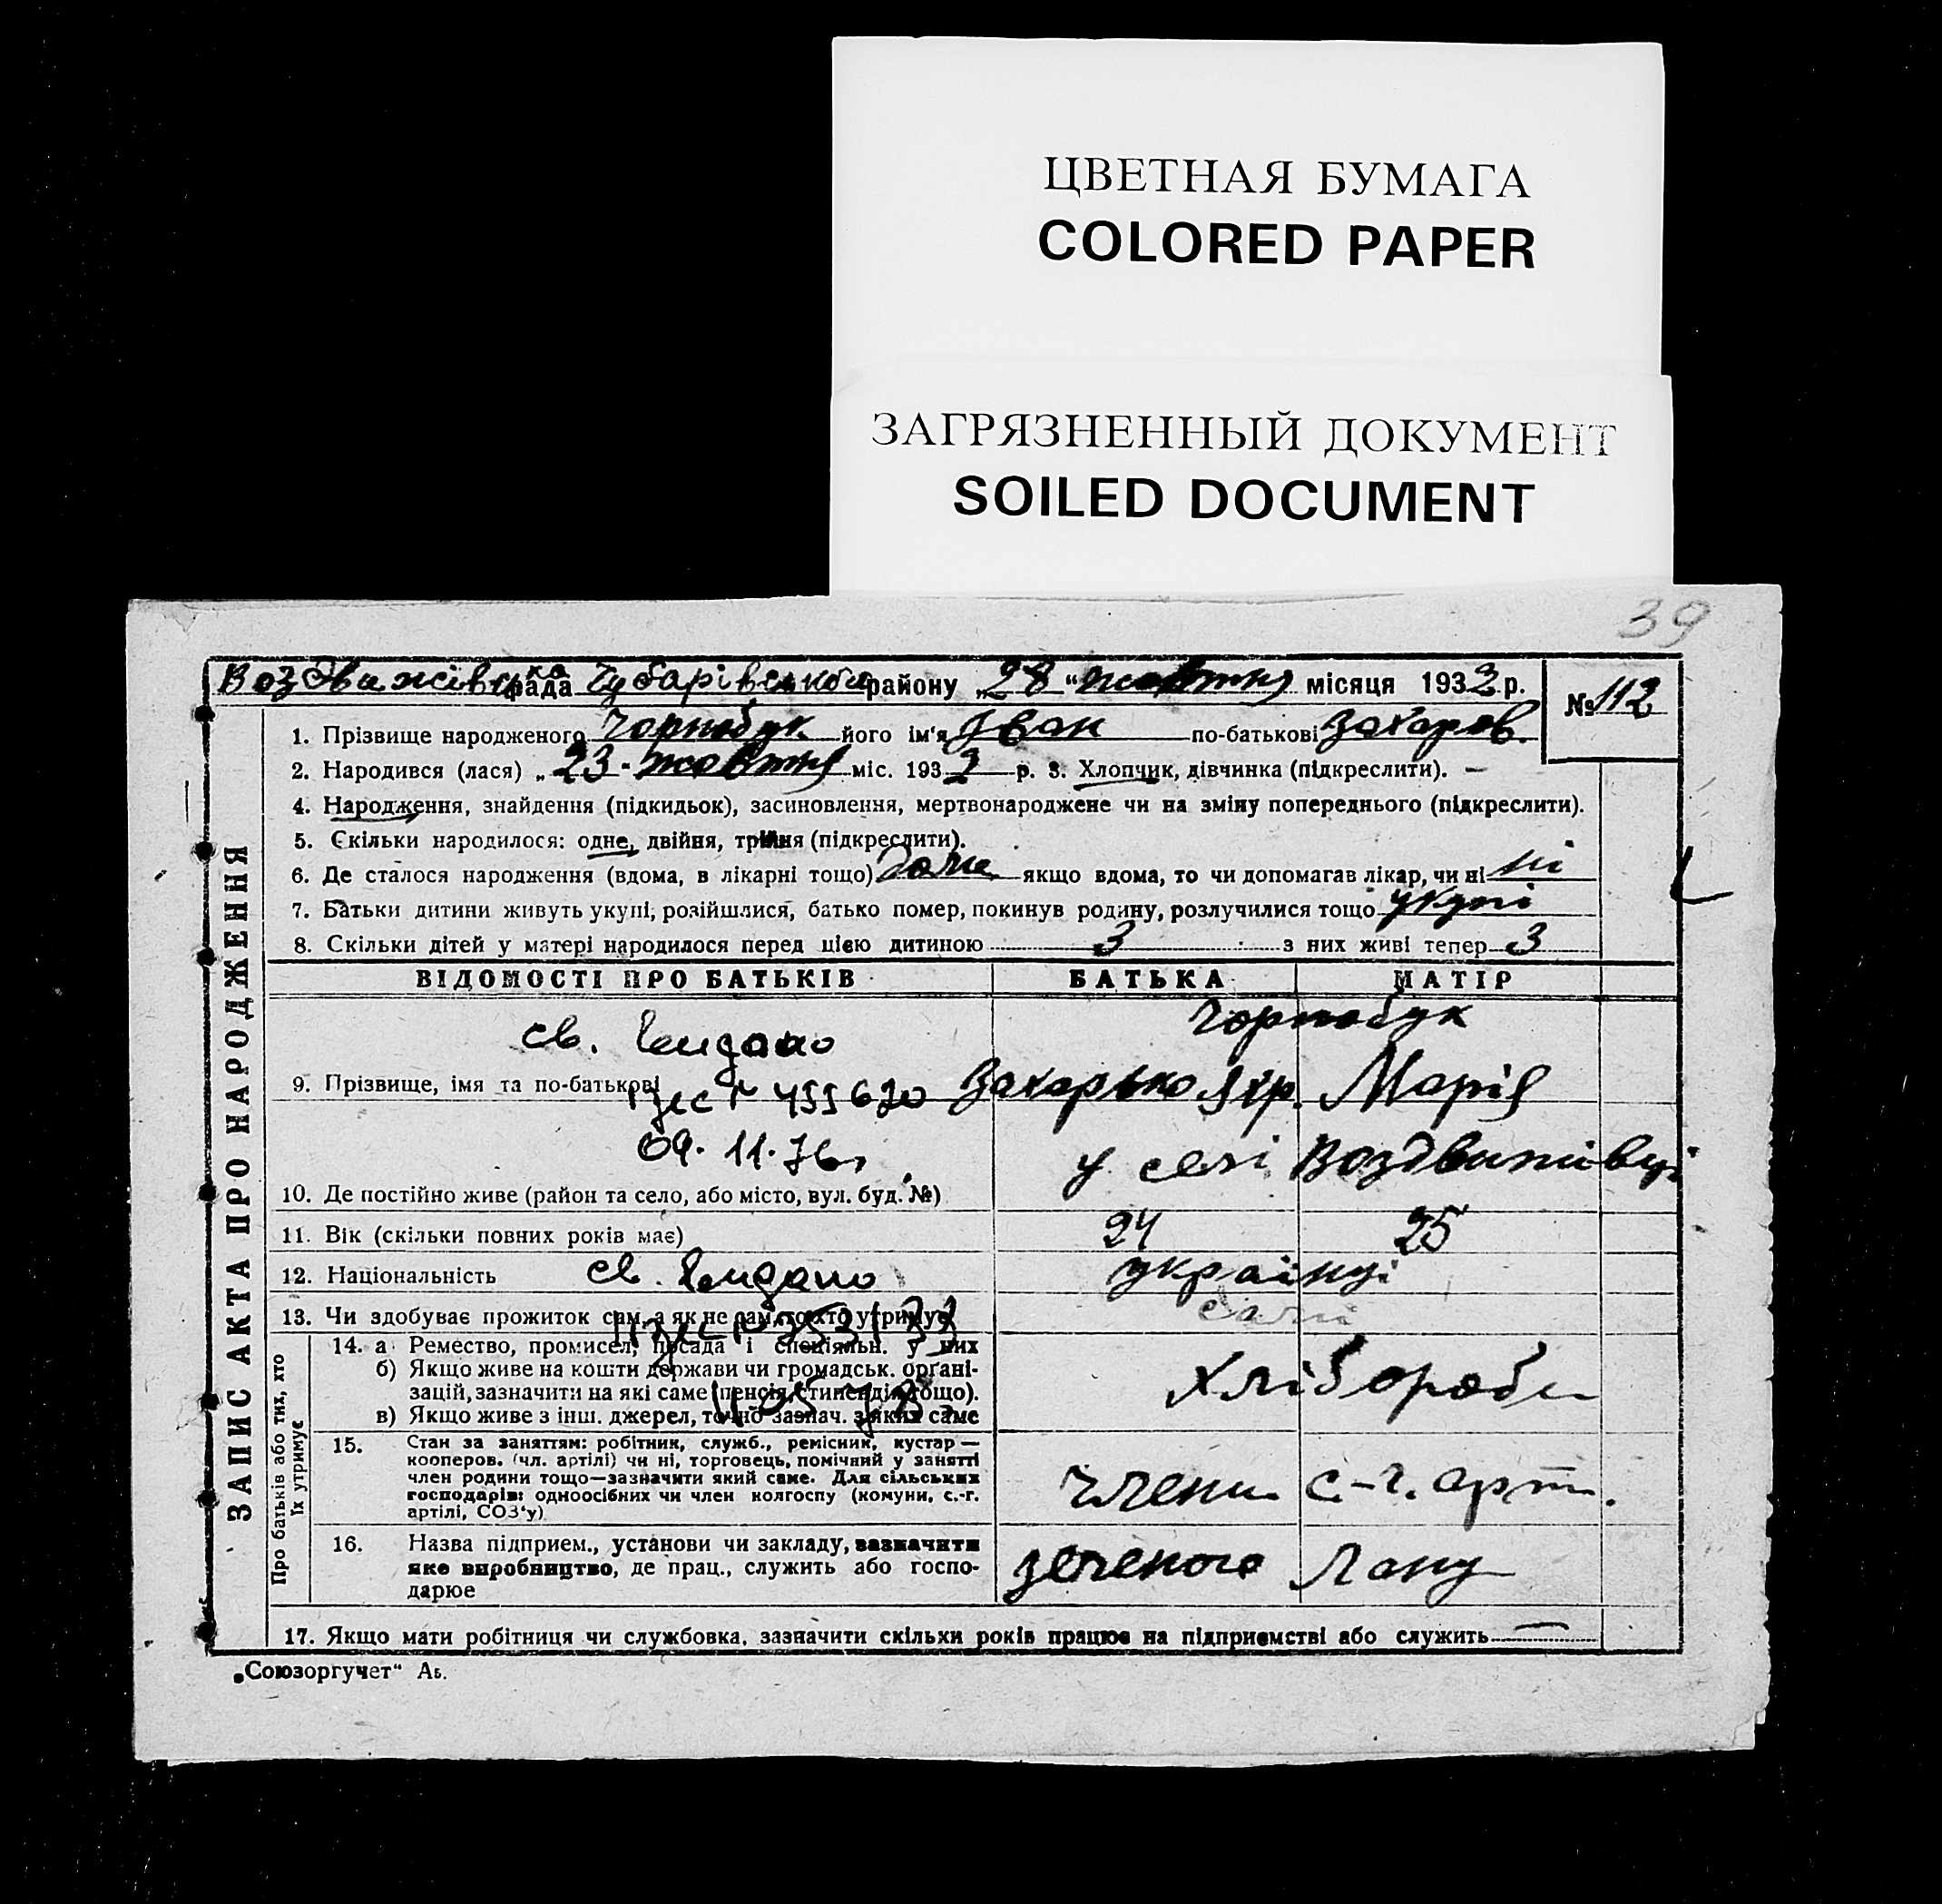 ЦВЕТНАЯ БУМАГА
COLORED PAPER
ЗАГРЯЗНЕННЫЙ ДОКУМЕНТ
SOILED DOCUMENT
39
Воздвижівська рада Чубарівського району „28“ жовтня місяця 1932 р.
№ 112
1. Прізвище народженого Чорнобук його ім'я Іван по-батькові Захаров.
2. Народився (лася) „23 жовтня міс. 1932 р. 3. Хлопчик, дівчинка (підкреслити).
4. Народження, знайдення (підкидьок), засиновлення, мертвонароджене чи на зміну попереднього (підкреслити).
5. Скільки народилося: одне, двійня, трійня (підкреслити).
6. Де сталося народження (вдома, в лікарні тощо) дома якщо вдома, то чи допомагав лікар, чи ні ні
7. Батьки дитини живуть укупі, розійшлися, батько помер, покинув родину, розлучилися тощо укупі
8. Скільки дітей у матері народилося перед цією дитиною 3 з них живі тепер 3
ЗАПИС АКТА ПРО НАРОДЖЕННЯ
ВІДОМОСТІ ПРО БАТЬКІВ БАТЬКА МАТІР
Чорнобук
св. видано
9. Прізвище, імя та по-батькові Захарько Марія
455620
09.11.76г
у селі Воздвижівці
10. Де постійно живе (район та село, або місто, вул. буд. №)
11. Вік (скільки повних років має) 24 25
12. Національність українці
св. видано
13. Чи здобуває прожиток сам, а як не сам, то хто утримує сами
Про батьків або тих, хто їх утримує
14. а Ремество, промисел, посада і спеціяльн. у них
б) Якщо живе на кошти держави чи громадськ. орґані-
зацій, зазначити на які саме (пенсія, стипендія тощо).
в) Якщо живе з інш. джерел, точно зазнач. з яких саме
хлібороби
15. Стан за заняттям: робітник, служб., ремісник, кустар—
кооперов. (чл. артілі) чи ні, торговець, помічний у занятті
член родини тощо—зазначити який саме. Для сільських
господарів: одноосібних чи член колгоспу (комуни, с.-г.
артілі, СОЗ'у)
члени с.-г. арт.
16. Назва підприєм., установи чи закладу, зазначити
яке виробництво, де прац., служить або госпо-
дарює
зеленого Лану
17. Якщо мати робітниця чи службовка, зазначити скільки років працює на підприємстві або служить —
„Союзоргучет“ Аь.